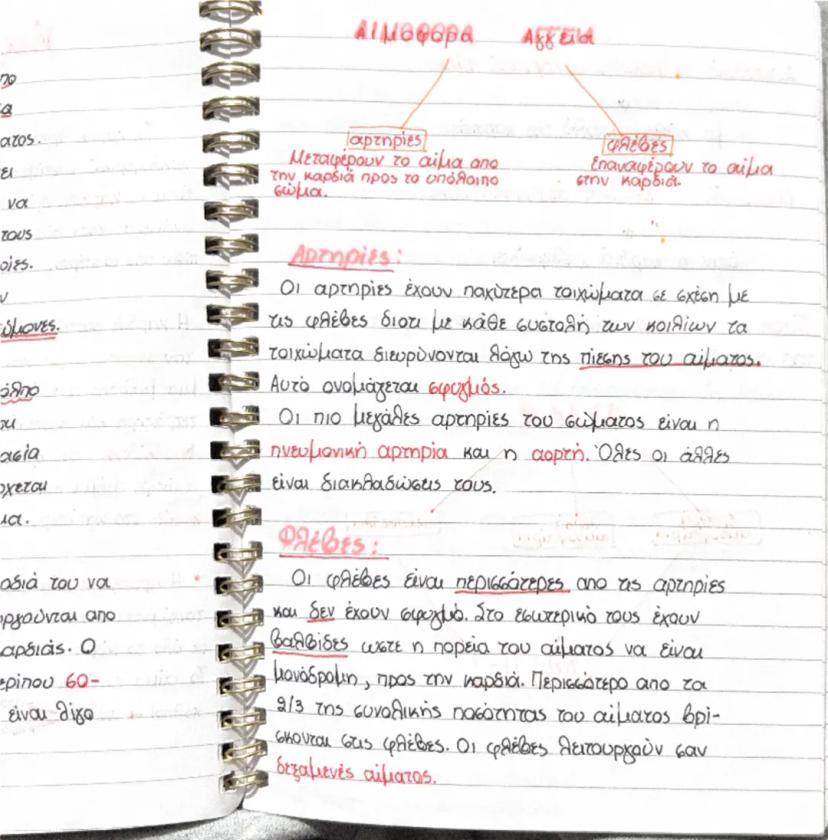 ΑΙΜΟΦΟΡΑ ΑΓΓΕΙΑ
αρτηρίες
Μεταφέρουν το αίμα απο
την καρδιά προς το υπόλοιπο
σώμα.
φλέβες
Επαναφέρουν το αίμα
στην καρδιά.
Αρτηρίες:
Οι αρτηρίες έχουν παχύτερα τοιχώματα σε σχέση με
τις φλέβες διοτι με κάθε συστολή των κοιλίων τα
τοιχώματα διευρύνονται λόγω της πίεσης του αίματος.
Αυτό ονομάζεται σφυγμός.
Οι πιο μεγάλες αρτηρίες του σώματος είναι η
πνευμονική αρτηρία και η αορτή. Όλες οι άλλες
είναι διακλαδώσεις τους.
Φλέβες:
Οι φλέβες είναι περισσότερες απο τις αρτηρίες
και δεν έχουν σφυγμό. Στο εσωτερικό τους έχουν
βαλβίδες ωστε η πορεία του αίματος να είναι
μονόδρομη, προς την καρδιά. Περισσότερο απο τα
2/3 της συνολικής ποσότητας του αίματος βρί-
σκονται στις φλέβες. Οι φλέβες λειτουργούν σαν
δεξαμενές αίματος.
να
τους
διά του να
απο
καρδιάς. Ο
περίπου 60-
είναι λίγο